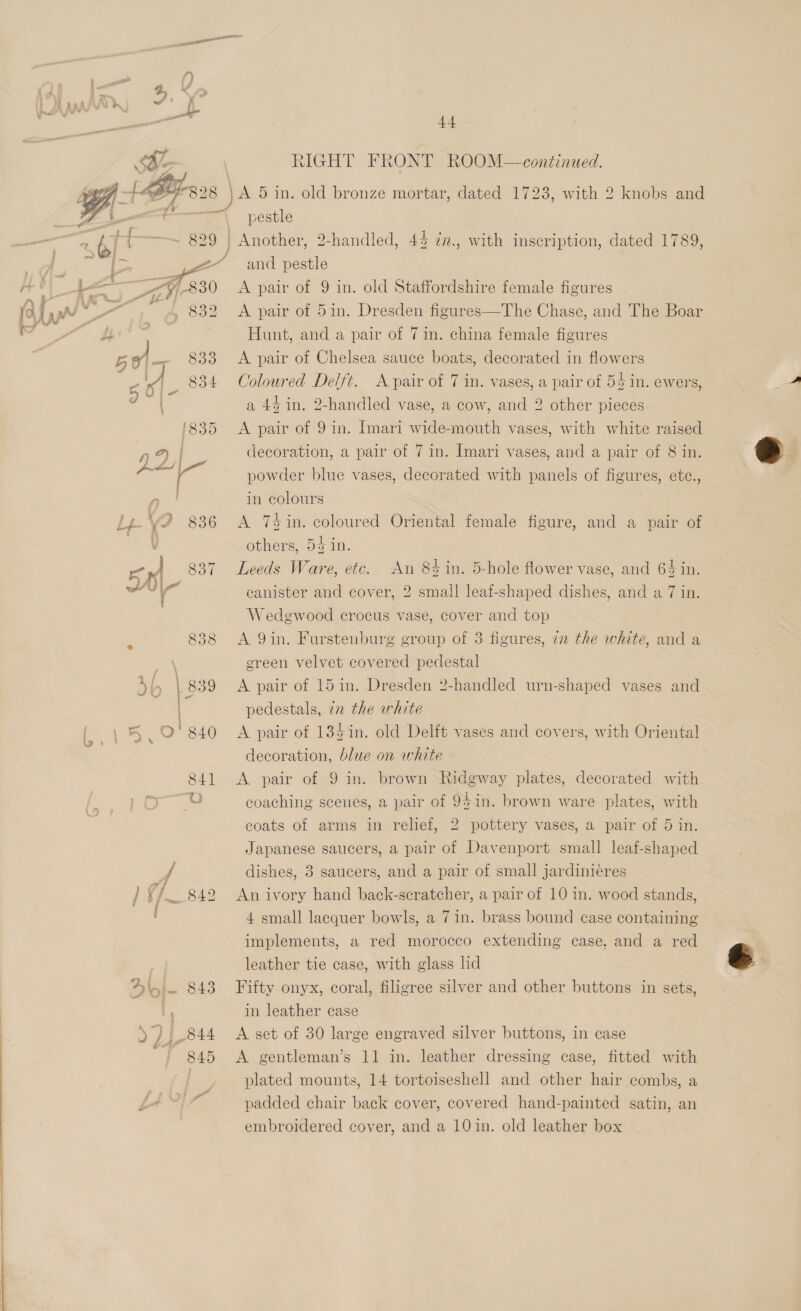 44
RIGHT FRONT ROOM—continued.
828 A 5 in. old bronze mortar, dated 1723, with 2 knobs and
pestle
829 Another, 2-handled, 4½ in., with inscription, dated 1789,
and pestle
830 A pair of 9 in. old Staffordshire female figures
832 A pair of 5 in. Dresden figures—The Chase, and The Boar
Hunt, and a pair of 7 in. china female figures
833 A pair of Chelsea sauce boats, decorated in flowers
834 Coloured Delft. A pair of 7 in. vases, a pair of 5½ in. ewers,
a 4½ in. 2-handled vase, a cow, and 2 other pieces
835 A pair of 9 in. Imari wide-mouth vases, with white raised
decoration, a pair of 7 in. Imari vases, and a pair of 8 in.
powder blue vases, decorated with panels of figures, etc.,
in colours
836 A 7½ in. coloured Oriental female figure, and a pair of
others, 5½ in.
837 Leeds Ware, etc. An 8½ in. 5-hole flower vase, and 6½ in.
canister and cover, 2 small leaf-shaped dishes, and a 7 in.
Wedgwood crocus vase, cover and top
838 A 9 in. Furstenburg group of 3 figures, in the white, and a
green velvet covered pedestal
839 A pair of 15 in. Dresden 2-handled urn-shaped vases and
pedestals, in the white
840 A pair of 13½ in. old Delft vases and covers, with Oriental
decoration, blue on white
841 A pair of 9 in. brown Ridgway plates, decorated with
coaching scenes, a pair of 9½ in. brown ware plates, with
coats of arms in relief, 2 pottery vases, a pair of 5 in.
Japanese saucers, a pair of Davenport small leaf-shaped
dishes, 3 saucers, and a pair of small jardinières
842 An ivory hand back-scratcher, a pair of 10 in. wood stands,
4 small lacquer bowls, a 7 in. brass bound case containing
implements, a red morocco extending case, and a red
leather tie case, with glass lid
843 Fifty onyx, coral, filigree silver and other buttons in sets,
in leather case
844 A set of 30 large engraved silver buttons, in case
845 A gentleman's 11 in. leather dressing case, fitted with
plated mounts, 14 tortoiseshell and other hair combs, a
padded chair back cover, covered hand-painted satin, an
embroidered cover, and a 10 in. old leather box